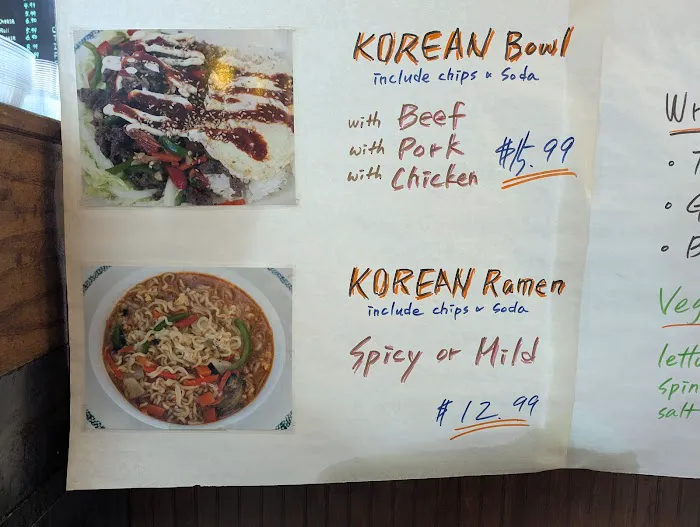 KOREAN Bowl
include chips & Soda
with Beef
with Pork
with Chicken
$15.99
KOREAN Ramen
include chips & Soda
Spicy or Mild
$12.99